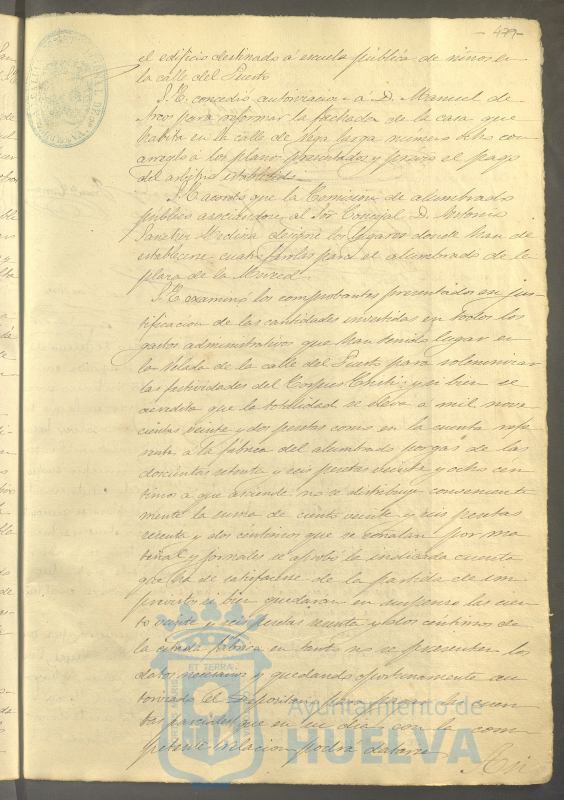 -479-
el edificio destinado á escuela pública de niños en
la calle del Puerto
S.E. concedió autorizacion á D. Manuel de
Arcos para reformar la fachada de la casa que
habita en la calle de Vega larga número ocho con
arreglo a los planos presentados y previo el pago
del arbitrio establecido.
S.E. acordó que la Comision de alumbrado
público asociandose al Sor Concejal D. Antonio
Sanchez Medina designe los lugares donde han de
establecerse cuatro farolas para el alumbrado de la
plaza de la Merced.
S.E. examinó los comprobantes presentados en jus-
tificacion de las cantidades invertidas en todos los
gastos administrativos que han tenido lugar en
la Velada de la calle del Puerto para solemnizar
las festividades del Corpus Christi; y si bien se
acredita que la totalidad se eleva a mil nove
cientas veinte y dos pesetas como en la cuenta refe
rente a la fábrica del alumbrado por gas de las
doscientas setenta y seis pesetas veinte y ocho cen
timos a que asciende no se distribuye conveniente
mente la suma de ciento veinte y seis pesetas
sesenta y dos centimos que se señalan por ma
terial y jornales se aprobó la indicada cuenta
que ha de satisfacerse de la partida de im
previstos si bien quedaran en suspenso las cien
to veinte y seis pesetas sesenta y dos centimos de
la citada fábrica en tanto no se presenten los
datos necesarios y quedando oportunamente au
torizado el Depositario para pagar las cuen
tas parciales que en su dia con la com
petente relacion podrá datarse.
Asi
Ayuntamiento de
HUELVA